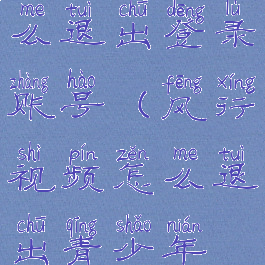 me tuì chū dēng lù
么退出登录
zhàng hào fēng xíng
账号（风行
shì pín zěn me tuì
视频怎么退
chū qīng shǎo nián
出青少年